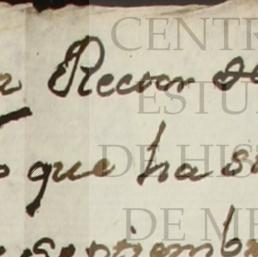 Rector de
que ha
septiembre
CENTR
ESTU
DE HIS
DE ME